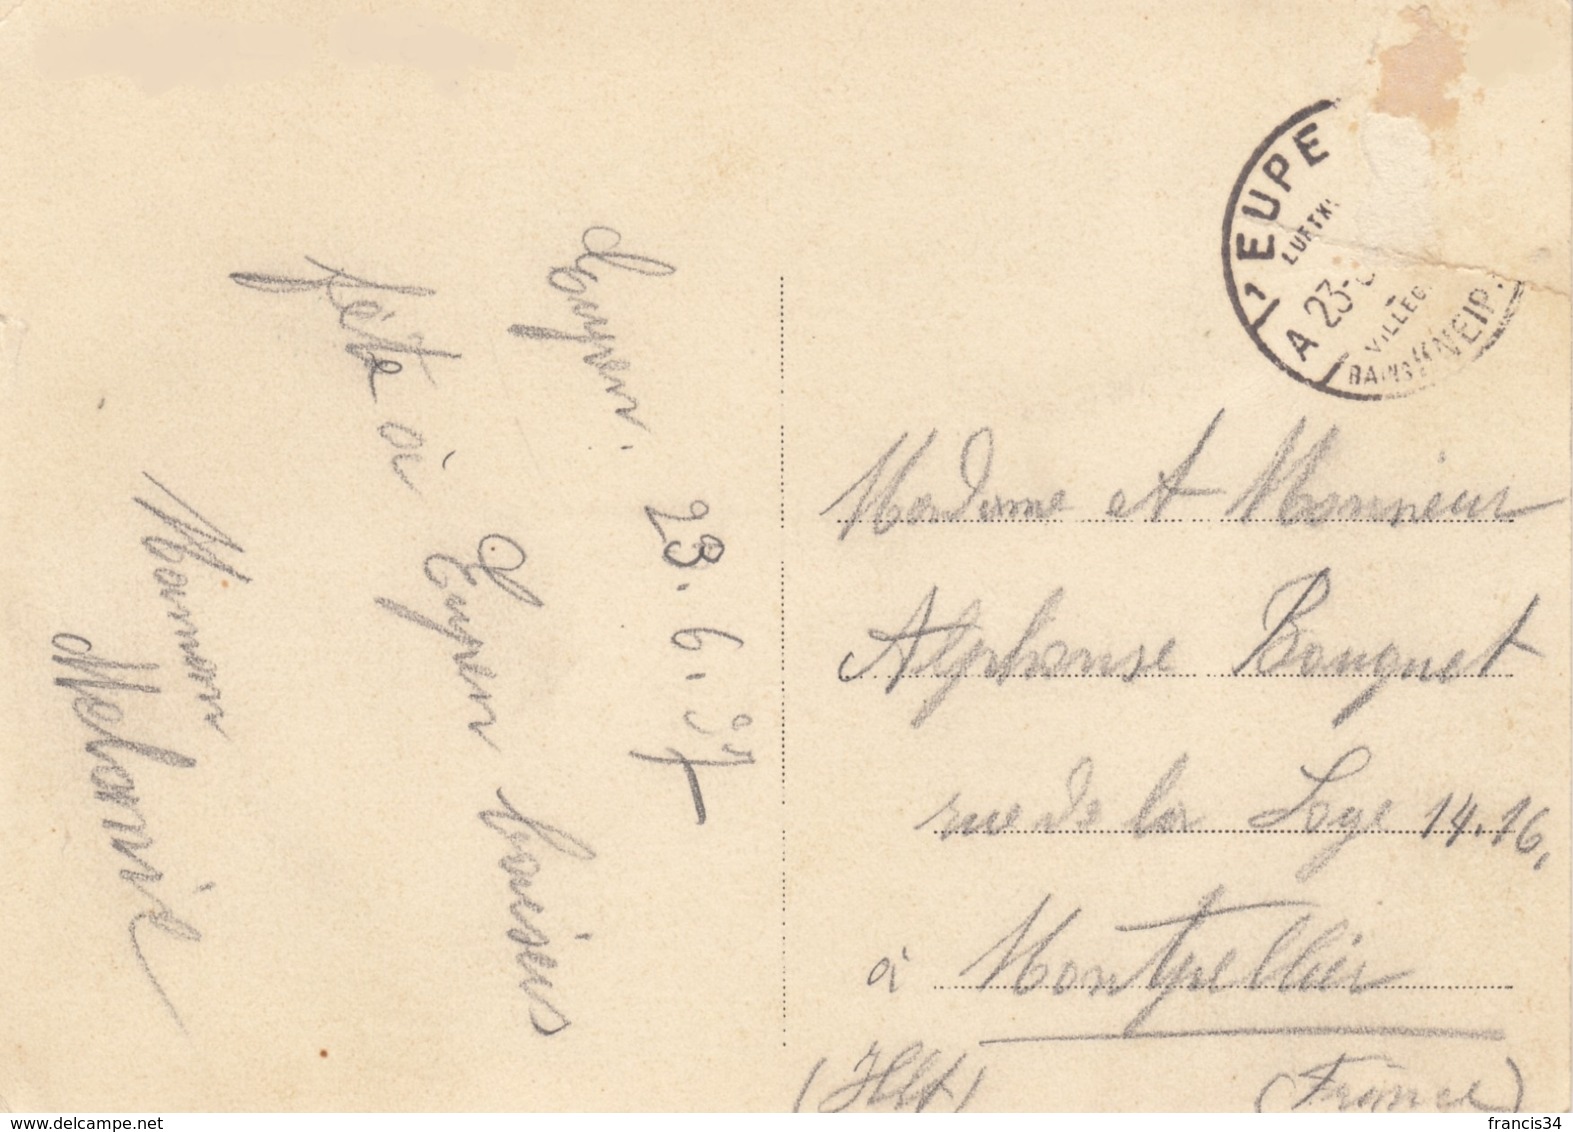 Eupen. 23.6.37
Fête à Eupen baisers
Maman
Melanie
1 EUPE
LUFTK
A 23-6
VILLEG
BAINS KNEIP
Madame et Monsieur
Alphonse Bouquet
rue de la Loge 14.16,
à Montpellier
(Hlt) (France)
www.delcampe.net
francis34